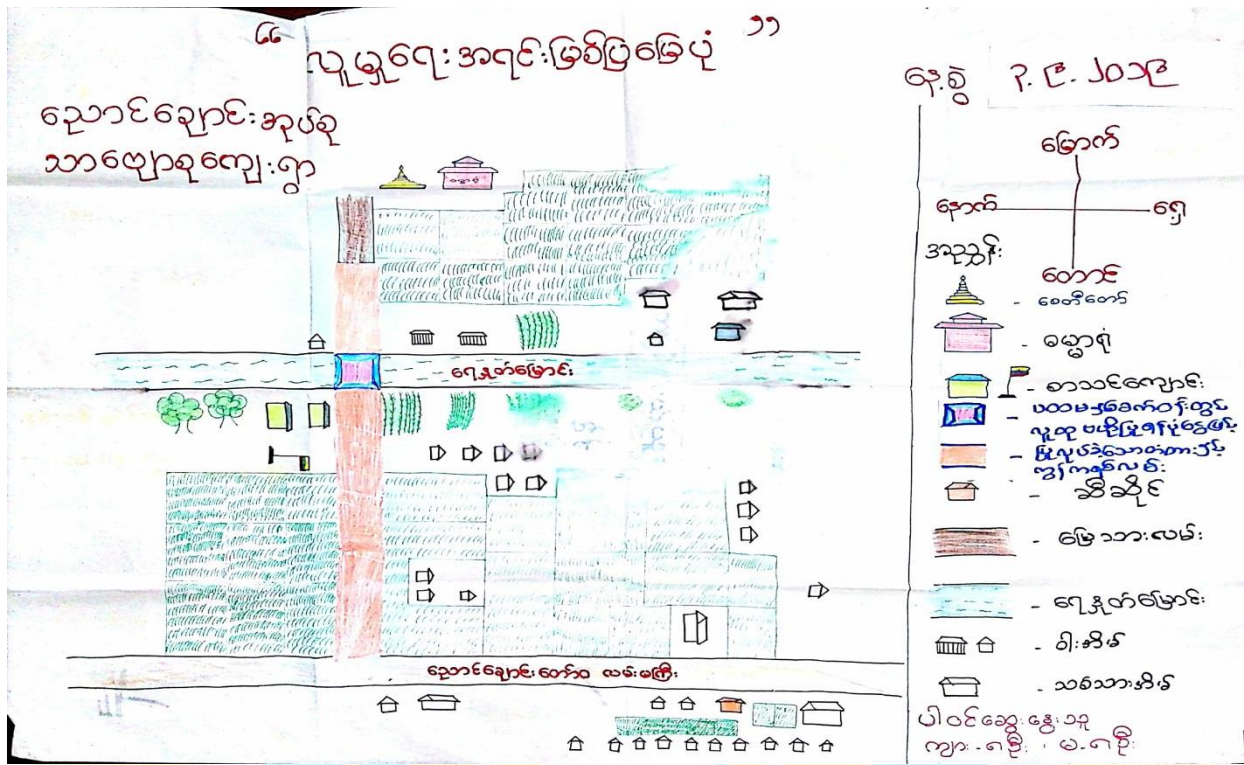 “ လူမှုရေးအရင်းမြစ်ပြမြေပုံ ”
ညောင်ချောင်းအုပ်စု
သာဗျောစုကျေးရွာ
နေ့စွဲ ၃.၉.၂၀၁၉
မြောက်
နောက် ရှေ့
တောင်
အညွှန်း
- စေတီတော်
- ဓမ္မာရုံ
- စာသင်ကျောင်း
- ပထမနှစ်
လူထု
ပြုလုပ်ခဲ့သောတံတားနှင့်
ကွန်ကရစ်လမ်း
- ဆီဆိုင်
- မြေသားလမ်း
- ရေနှုတ်မြောင်း
- ဝါးအိမ်
- သစ်သားအိမ်
ပါဝင်ဆွေးနွေးသူ
ကျား - ၈ဦး ၊ မ - ၈ဦး
ဓမ္မာရုံ
ရေနှုတ်မြောင်း
ညောင်ချောင်းတော်ဝ လမ်းမကြီး